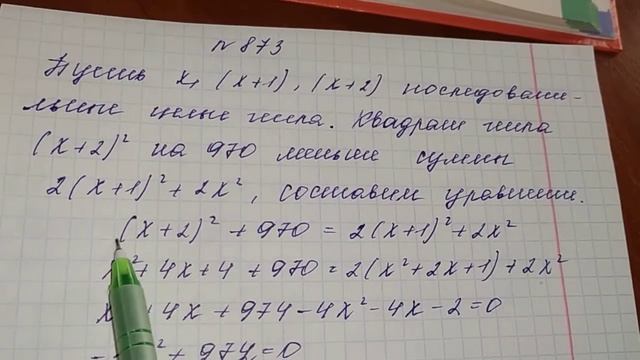 № 873
Пусть x, (x+1), (x+2) последователь-
льные целые числа. Квадрат числа
(x+2)² на 970 меньше суммы
2(x+1)² + 2x², составим уравнение.
(x+2)² + 970 = 2(x+1)² + 2x²
x² + 4x + 4 + 970 = 2(x² + 2x + 1) + 2x²
+ 4x + 974 - 4x² - 4x - 2 = 0
² + 974 = 0